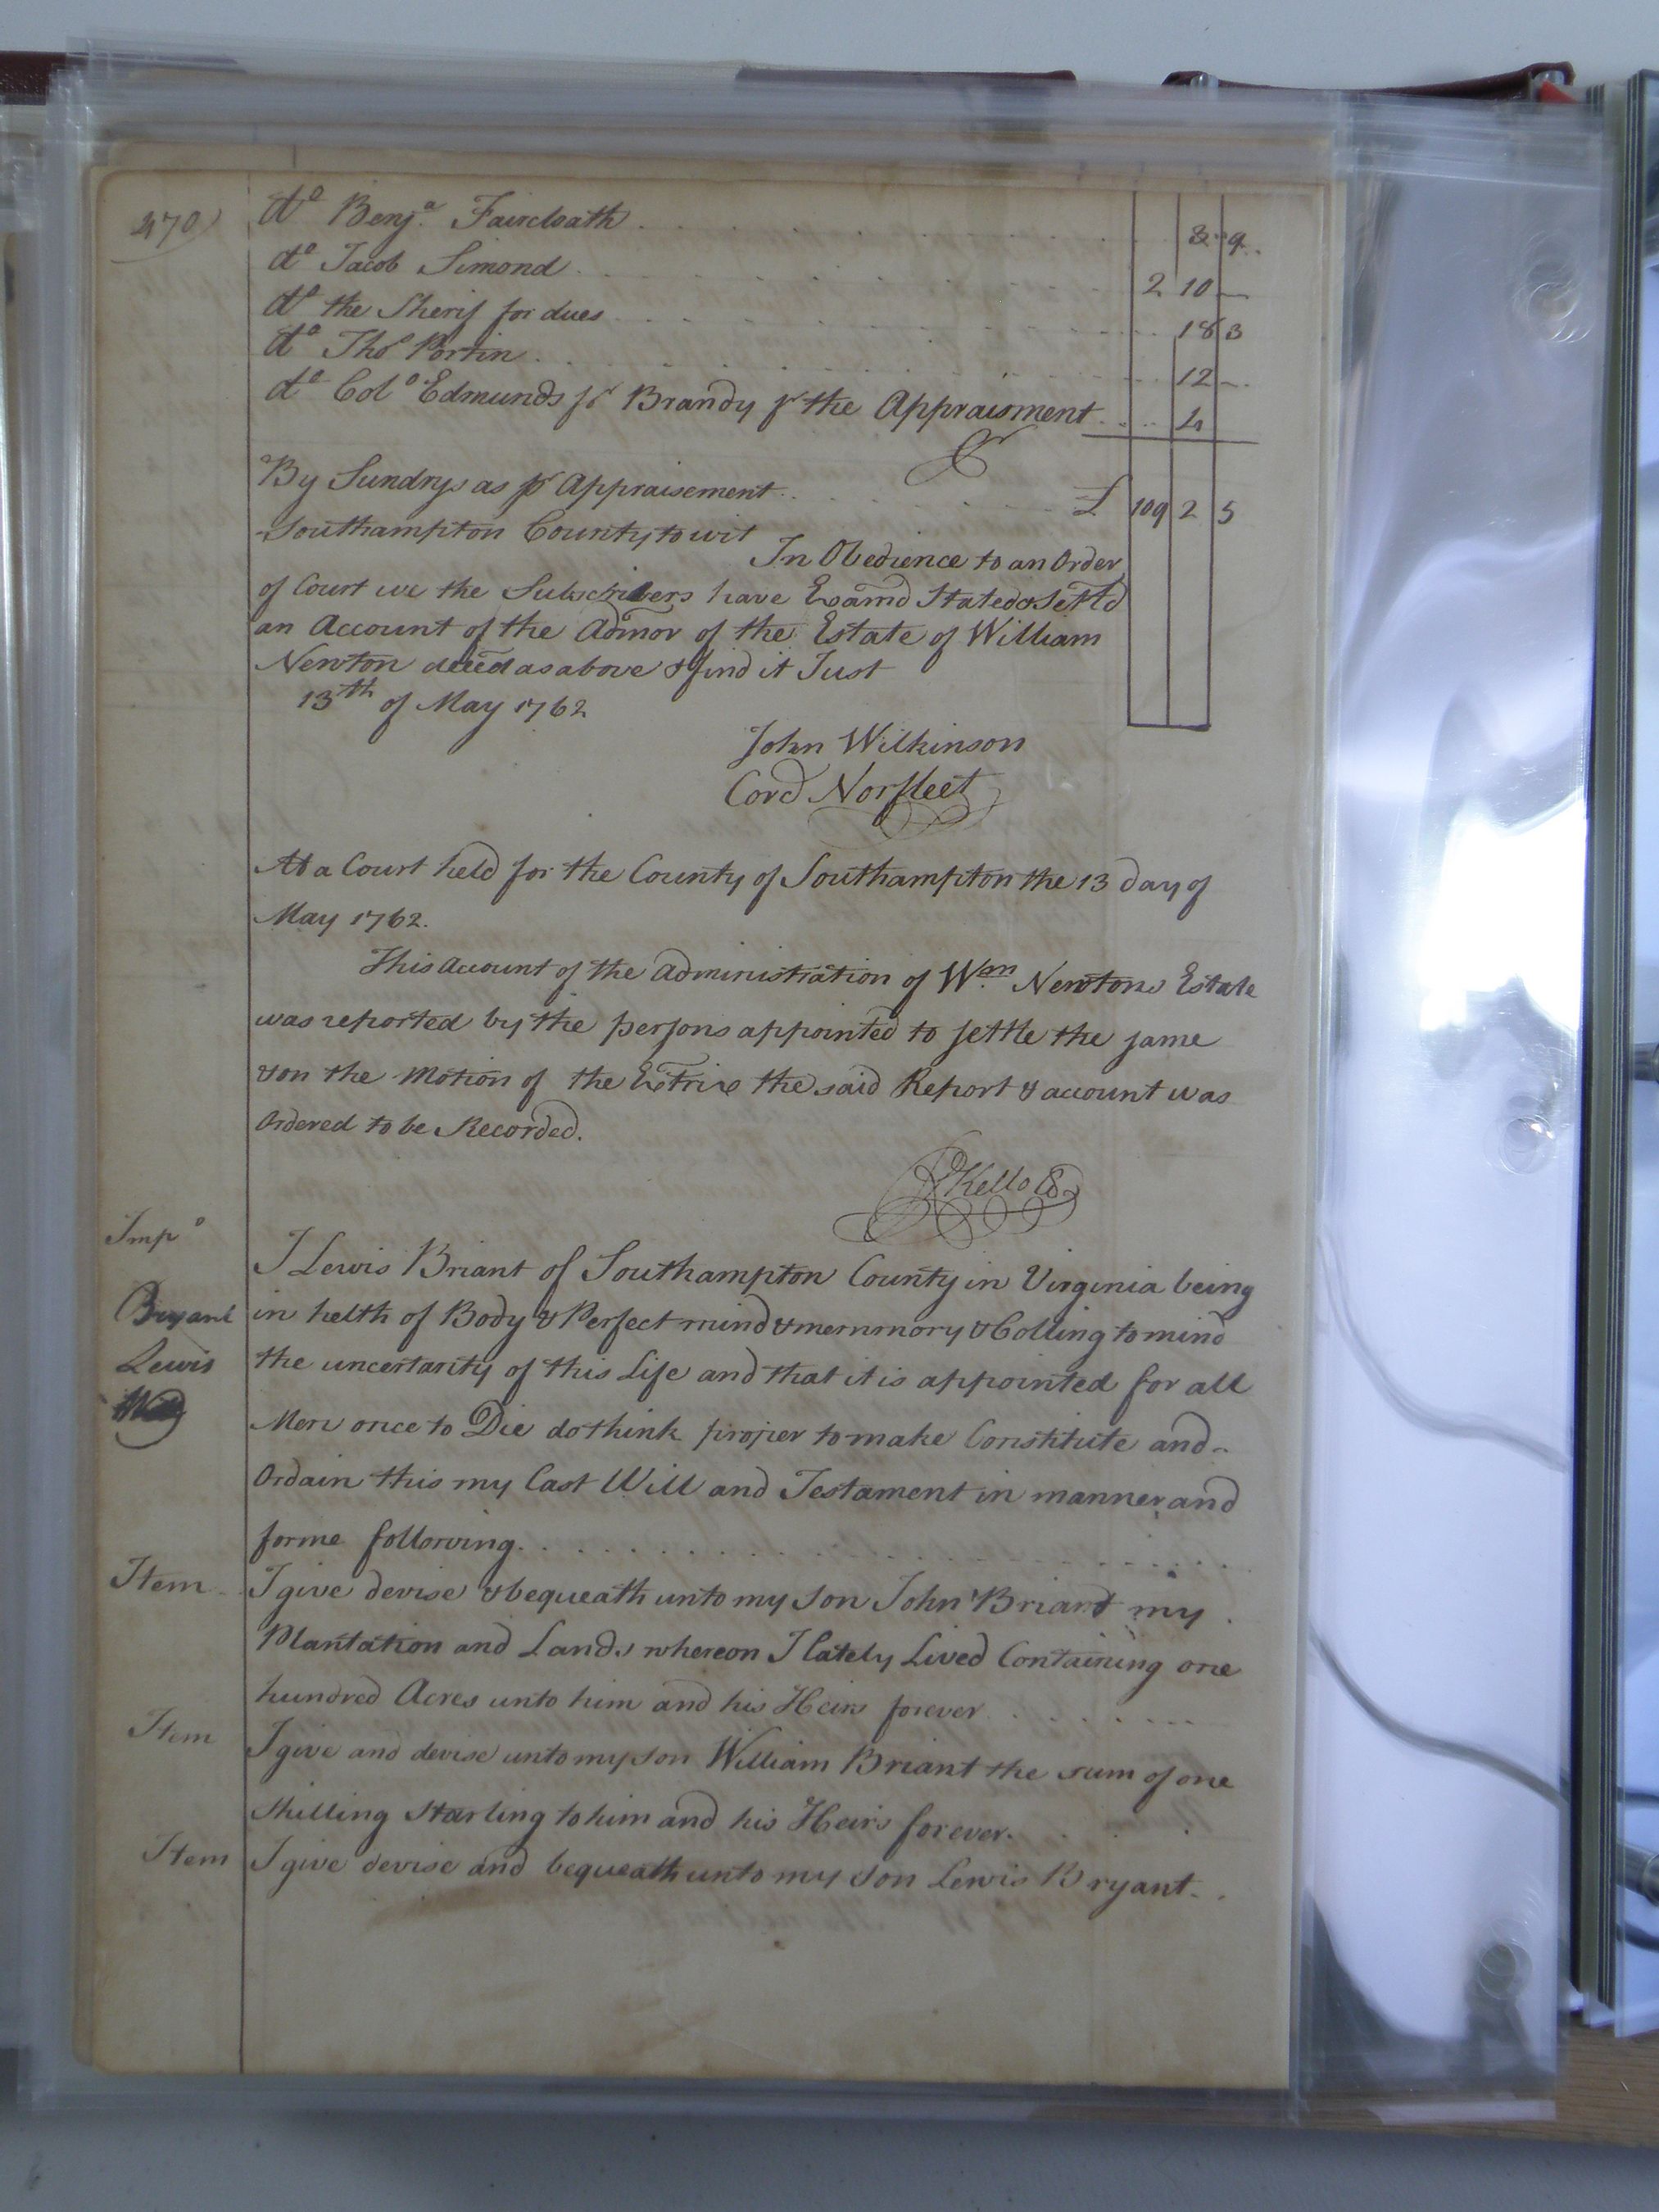 470
do Benja. Faircloath . . . 8 9
do Jacob Simond . . . 2 10 —
do the Sherif for dues . . . 18 3
do Thos Portin . . . 12 —
do Colo Edmunds for Brandy pr the Appraisment . . . 4
Cr
By Sundrys as pr Appraisement . . . £ 109 2 5
Southampton County to wit
In Obedience to an Order
of Court we the Subscribers have Examd Stated & Settd
an Account of the Admor of the Estate of William
Newton deced as above & find it Just
13th of May 1762
John Wilkinson
Cord Norfleet
At a Court held for the County of Southampton the 13 day of
May 1762.
This Account of the Administration of Wm Newtons Estate
was reported by the persons appointed to settle the same
& on the Motion of the Extrix the said Report & account was
Ordered to be Recorded.
R Kello C
Impo
I Lewis Briant of Southampton County in Virginia being
Bryant in helth of Body & Perfect mind & memmory & Colling to mind
Lewis the uncertanity of this Life and that it is appointed for all
Men once to Die do think proper to make Constitute and
Ordain this my Last Will and Testament in manner and
forme following. . . .
Item I give devise & bequeath unto my Son John Briant my
Plantation and Lands whereon I lately Lived Containing one
hundred Acres unto him and his Heirs forever . . .
Item I give and devise unto my Son William Briant the sum of one
Shilling Starling to him and his Heirs forever.
Item I give devise and bequeath unto my Son Lewis Bryant